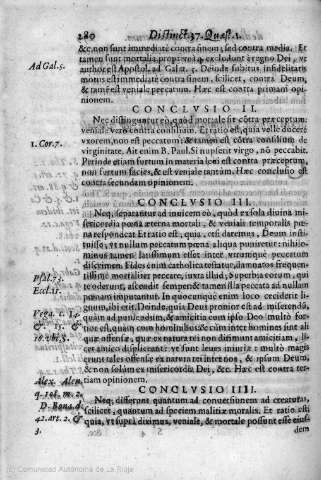 280 Distinct. 37. Quæst. 1.
&c. non sunt immediatè contra finem; sed contra media. Et
tamen sunt mortalia, propter quæ excludunt à regno Dei, vt
Ad Gal. 5.
author est Apostol. ad Galat. 5. Deinde subitus infidelitatis
motus est immediatè contra finem, scilicet, contra Deum,
& tamen est veniale peccatum. Hæc est contra primam opi-
nionem.
CONCLVSIO II.
Nec distinguuntur eò, quòd mortale sit côtra præceptum:
veniale verò contra consilium. Et ratio est, quia velle ducere
1. Cor. 7.
vxorem, non est peccatum: & tamen est côtra consilium de
virginitate. Ait enim B. Paul. Si nupserit virgo, nõ peccabit.
Perinde etiam furtum in materia leui est contra præceptum,
non furtum facies, & est veniale tantùm. Hæc conclusio est
contra secundam opinionem.
CONCLVSIO III.
Neq; separantur ad inuicem eò, quòd ex sola diuina mi-
sericordia pœna æterna mortali, & veniali temporalis pe-
na respondeat. Et ratio est, quia, etsi daremus, Deum insti-
tuisse, vt nullum peccatum pœna aliqua puniretur: nihilo-
minus tamen latissimum esset inter vtrumque peccatum
discrimen. Fides enim catholica testatur, damnatos frequen-
tissimè mortaliter peccare,
Psal. 73.
iuxta illud, Superbia eorum, qui
te oderunt, ascendit semper: & tamen illa peccata ad nullam
Eccl. 11.
pœnam imputantur. In quocunque enim loco ceciderit li-
gnum, ibi erit.
quàm in puniendum, & amicitia cum ipso Deo multò for-
tior est, quàm cum hominibus:
let amico displicere: vt sunt leues iniuriæ: multò magis
erunt tales offensæ ex natura rei inter nos, & ipsum Deum,
& non solùm ex misericordia Dei, &c. Hæc est contra ter-
tiam opinionem.
CONCLVSIO IIII.
Neq; differunt quantum ad conuersionem ad creaturas,
scilicet, quantum ad speciem malitiæ moralis. Et ratio est:
quia, vt suprà diximus, veniale, & mortale possunt esse eius-
dem
(C) Comunidad Autónoma de La Rioja